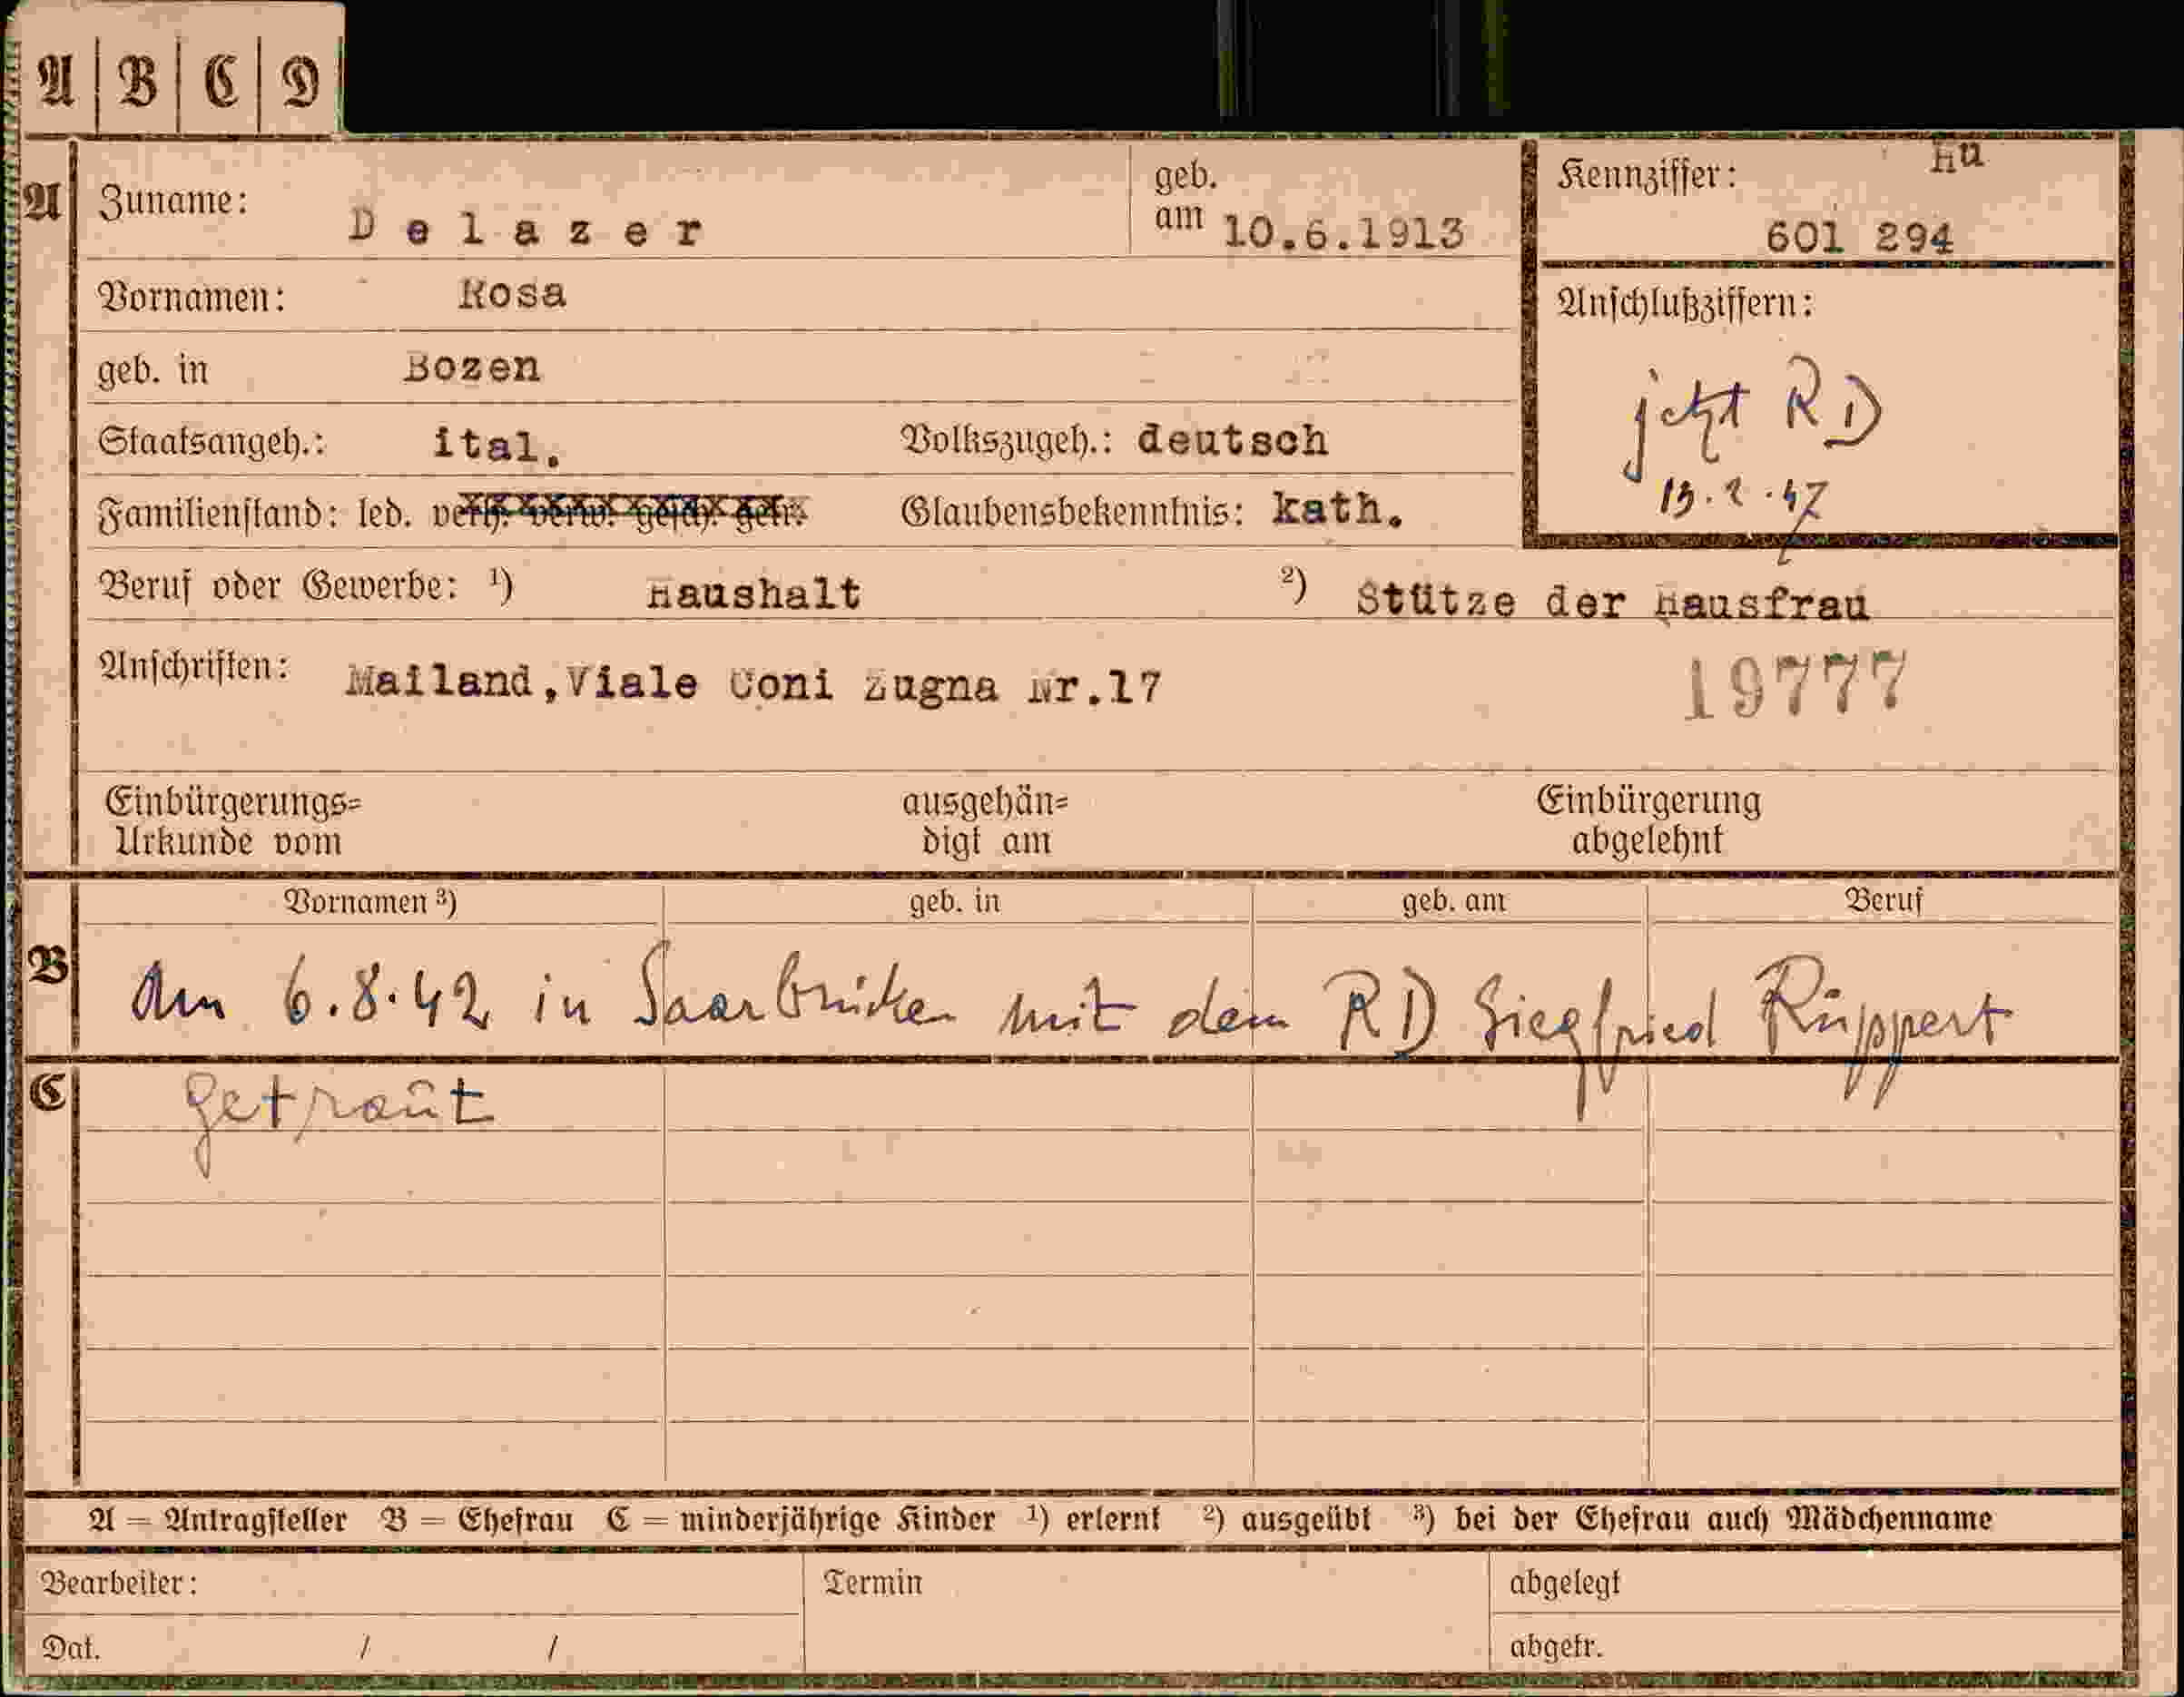 A | B | C | D
A Zuname: Delazer geb. am 10.6.1913 Kennziffer: Hu
601 294
Vornamen: Rosa Anschlußziffern:
geb. in Bozen
jetzt RD
Staatsangeh.: ital. Volkszugeh.: deutsch
Familienstand: led. verh. verw. gesch. getr. Glaubensbekenntnis: kath.
Beruf oder Gewerbe: ¹) Haushalt ²) Stütze der Hausfrau
Anschriften: Mailand,Viale Coni Zugna Nr.17 19777
Einbürgerungs= ausgehän= Einbürgerung
Urkunde vom digt am abgelehnt
Vornamen ³) geb. in geb. am Beruf
B Am 6.8.42 in Saarbrücken mit dem RD Siegfried Rüppert
C getraut
A = Antragsteller B = Ehefrau C = minderjährige Kinder ¹) erlernt ²) ausgeübt ³) bei der Ehefrau auch Mädchenname
Bearbeiter: Termin abgelegt
Dat. / / abgetr.